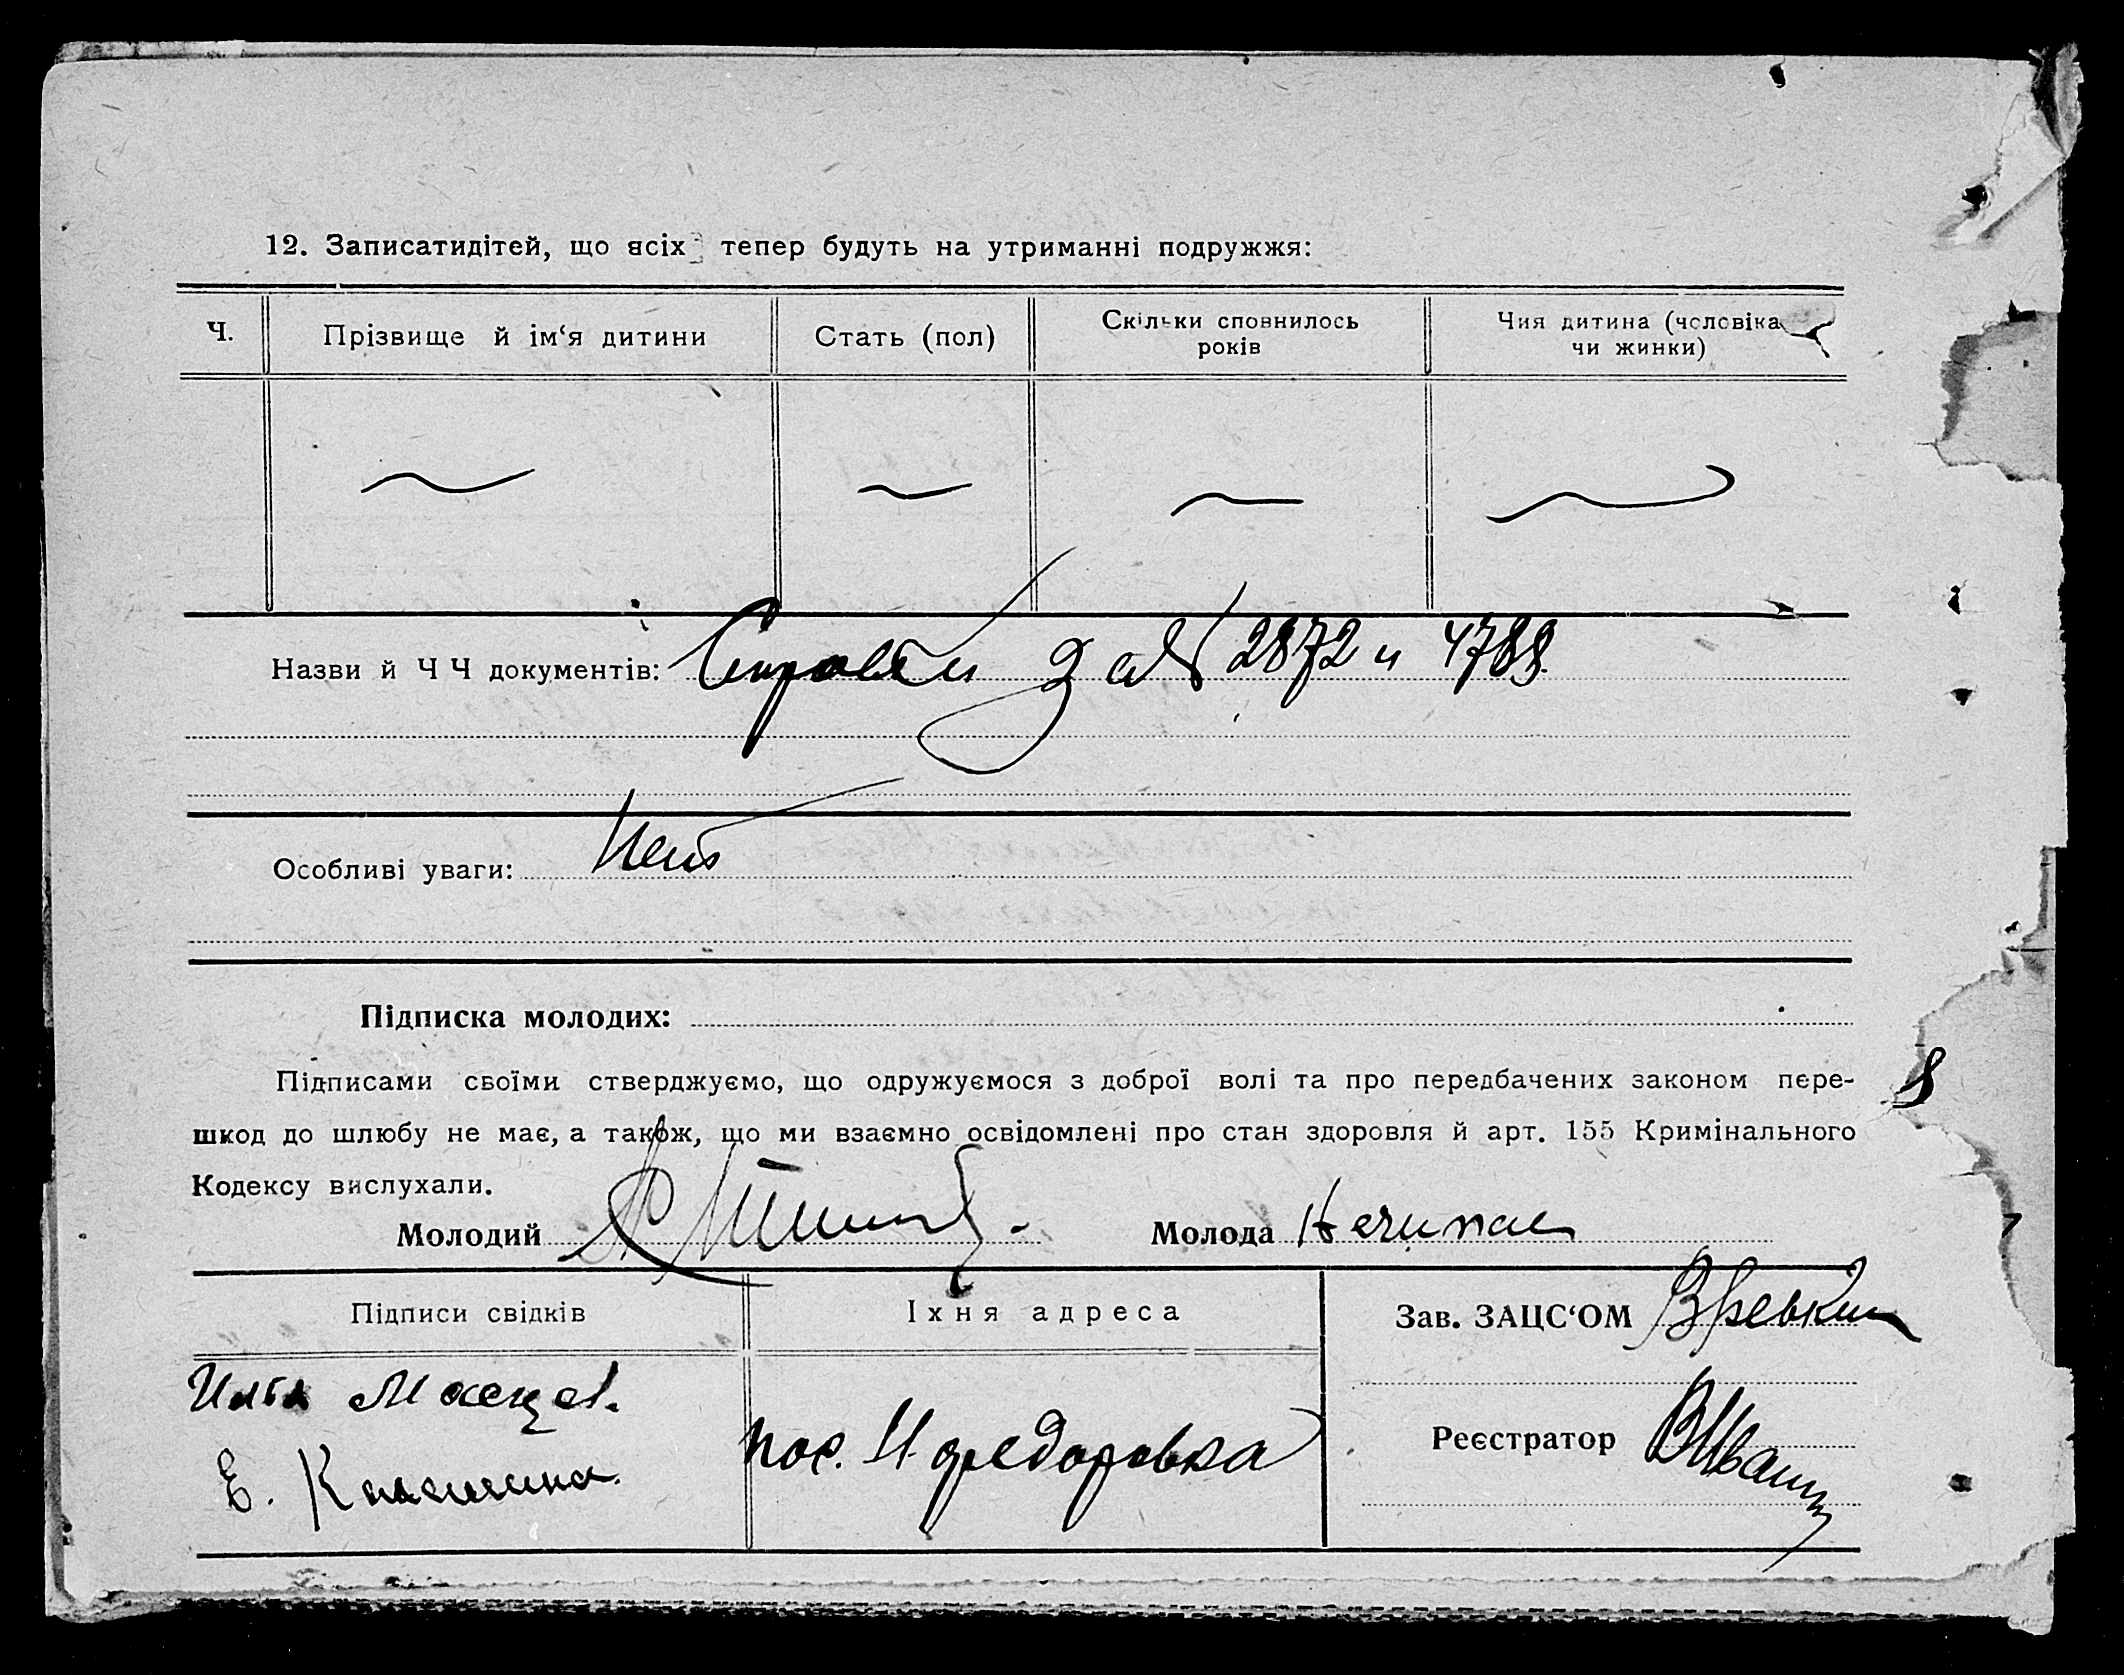 12. Записатидітей, що всіх тепер будуть на утриманні подружжя:
Ч. Прізвище й ім‘я дитини Стать (пол) Скільки сповнилось років Чия дитина (человіка чи жинки)
Назви й Ч Ч документів: Справки за № 2872 и 4789.
Особливі уваги: Нет
Підписка молодих:
Підписами своїми стверджуємо, що одружуємося з доброї волі та про передбачених законом пере-
шкод до шлюбу не має, а також, що ми взаємно освідомлені про стан здоровля й арт. 155 Кримінального
Кодексу вислухали.
Молодий Молода
Підписи свідків Їхня адреса Зав. ЗАЦС‘ОМ
Илья
Е. пос. Н федоровка
Реєстратор